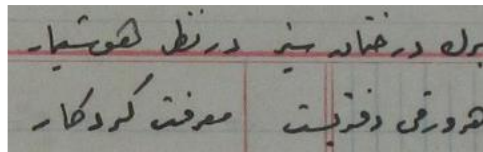 برگ درختان سبز در نظر هوشیار
هر ورقی دفتریست معرفت کردگار